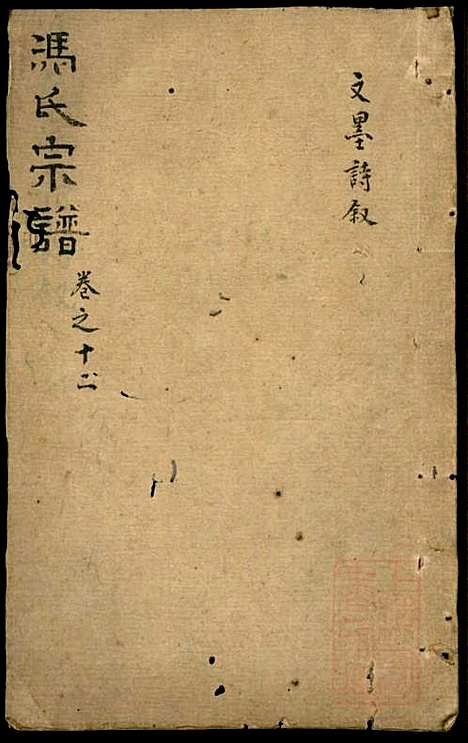 文墨詩叙
馮氏宗譜
卷之十二